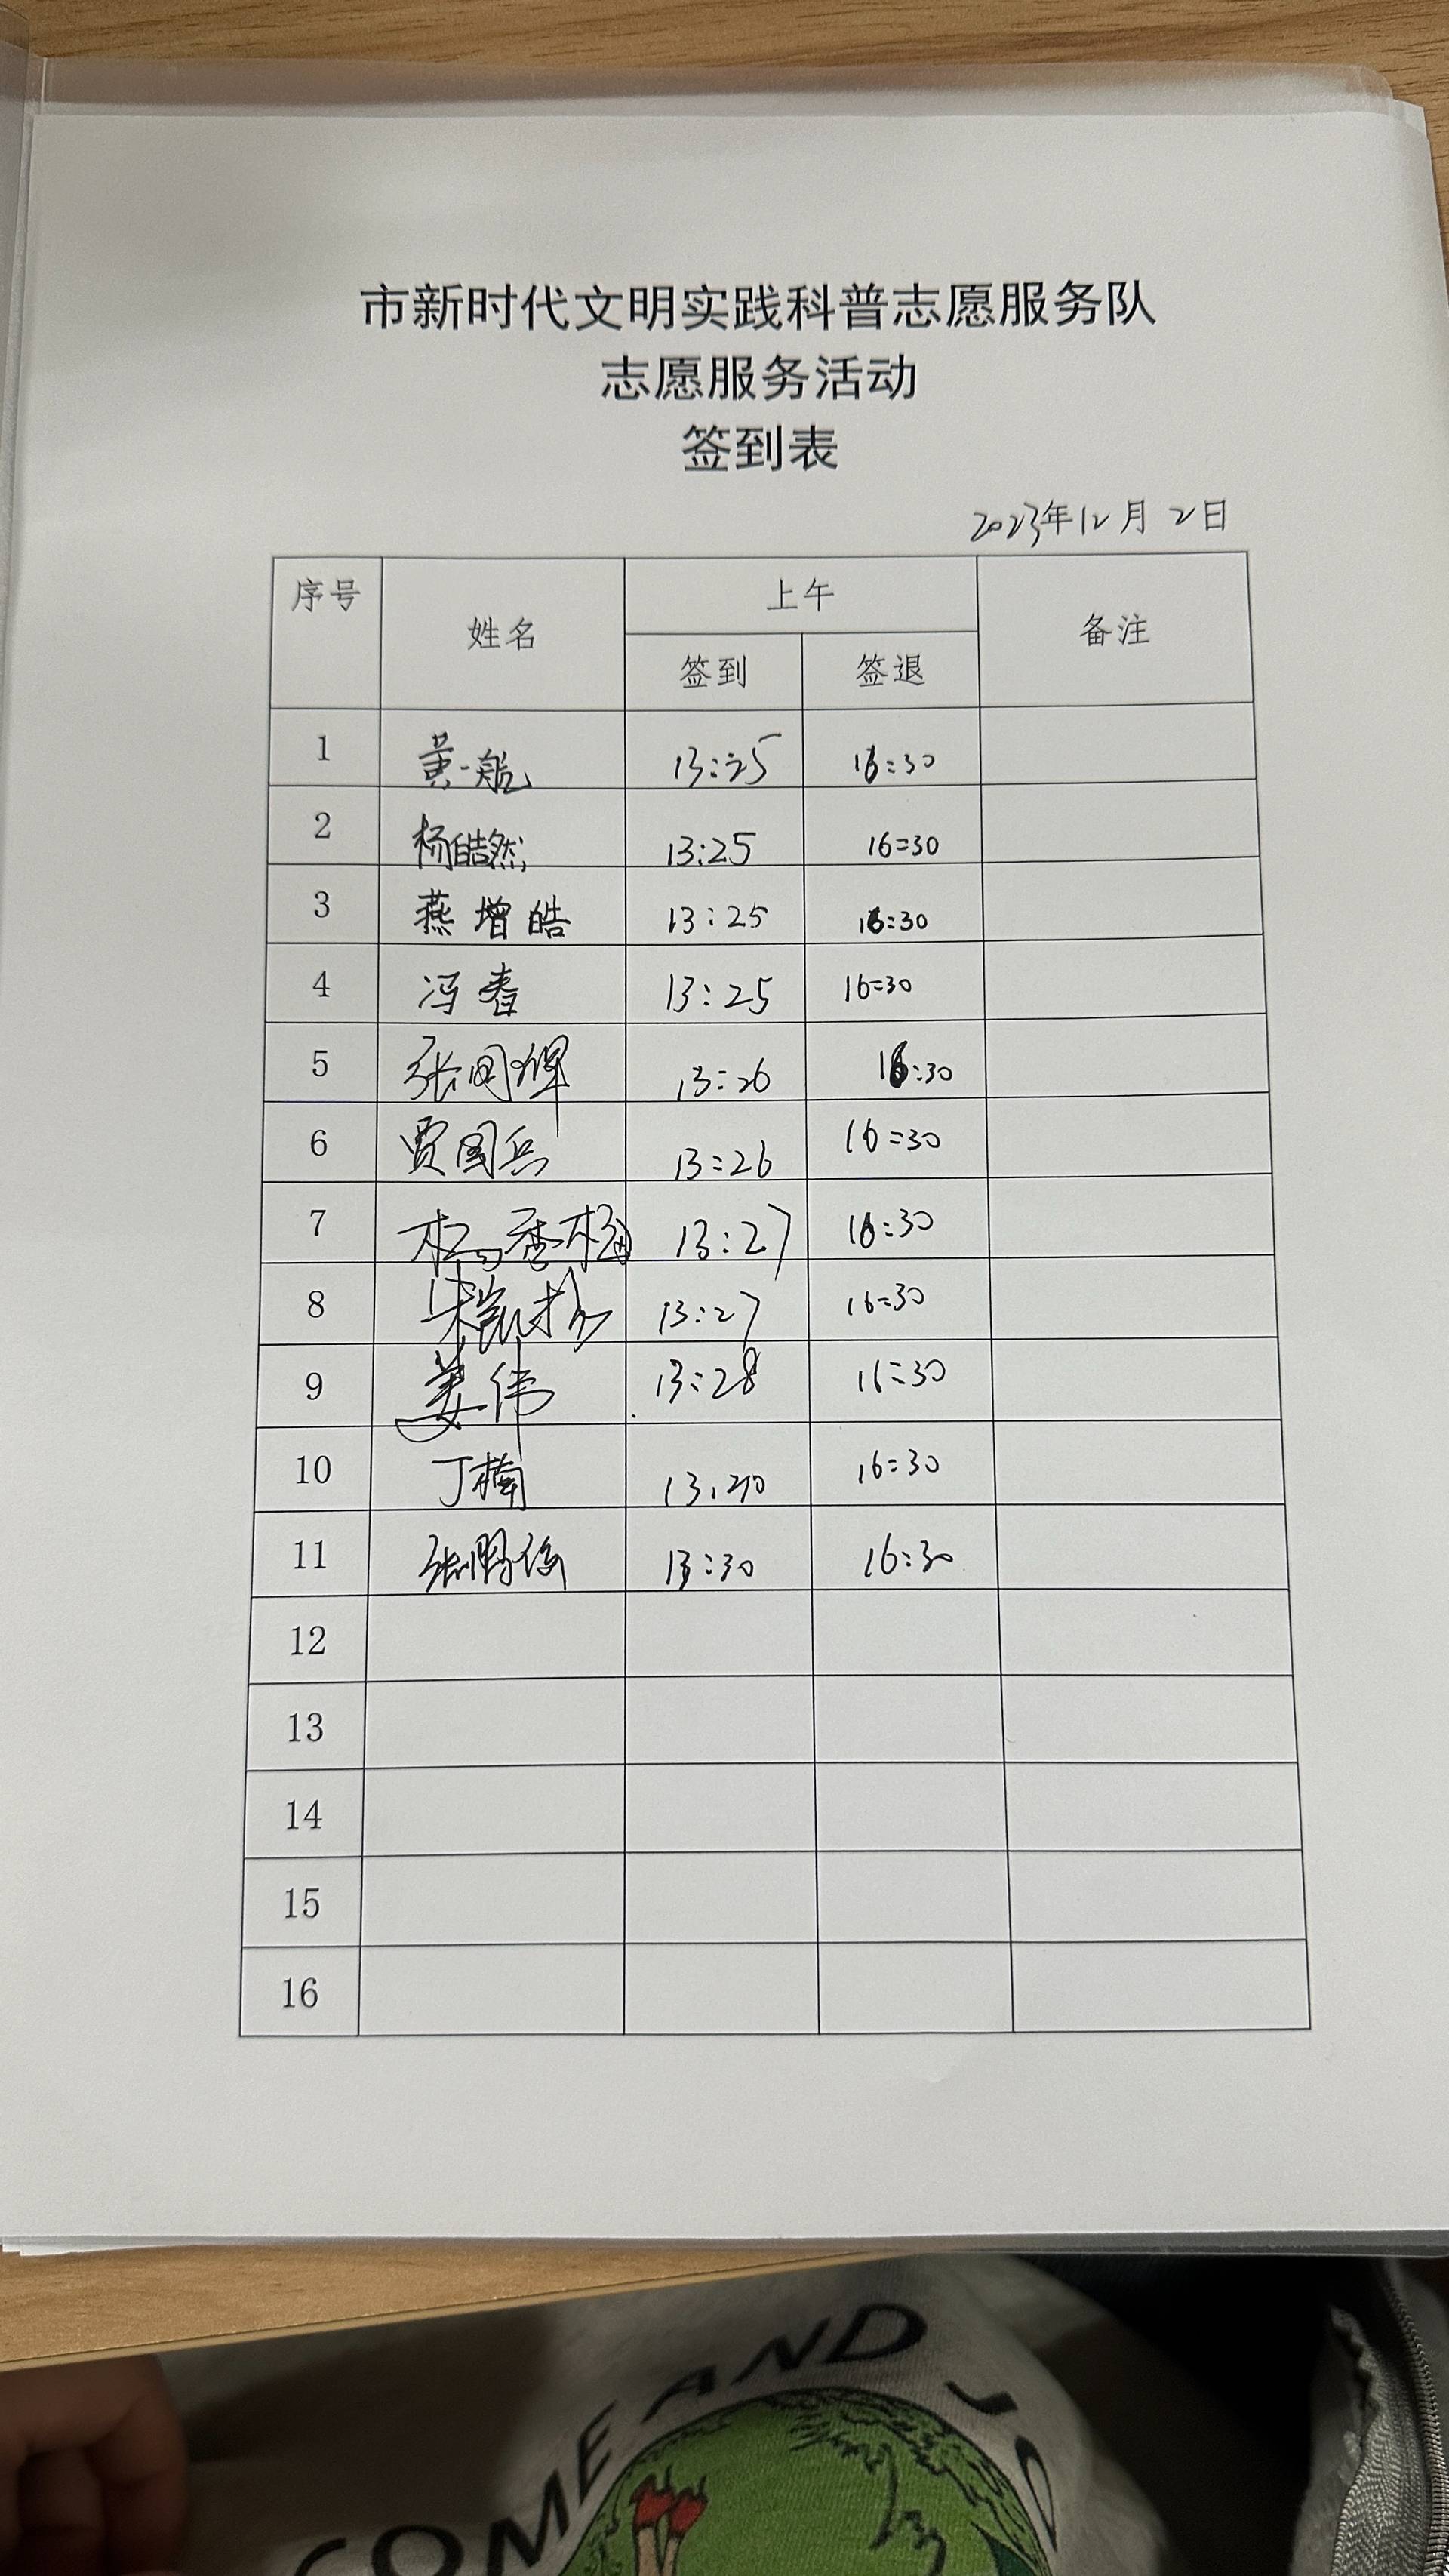 市新时代文明实践科普志愿服务队
志愿服务活动
签到表
2023年12月2日
序号 姓名 上午 备注
签到 签退
1 黄一航 13:25 16:30
2 杨皓然 13:25 16:30
3 燕增皓 13:25 16:30
4 冯春 13:25 16:30
5 张国辉 13:26 16:30
6 贾国兵 13:26 16:30
7 杨秀梅 13:27 16:30
8 13:27 16:30
9 姜伟 13:28 16:30
10 丁楠 16:30
11 张鹏 13:30 16:30
12
13
14
15
16
COME AND